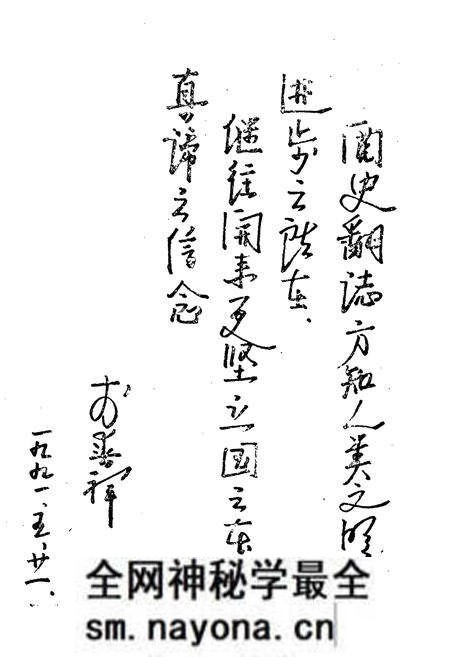 阅史翻誌方知人类文明
进步之所在、
继往开来更坚立国之本
真谛之信念
一九九一.五.廿一.
全网神秘学最全
sm.nayona.cn